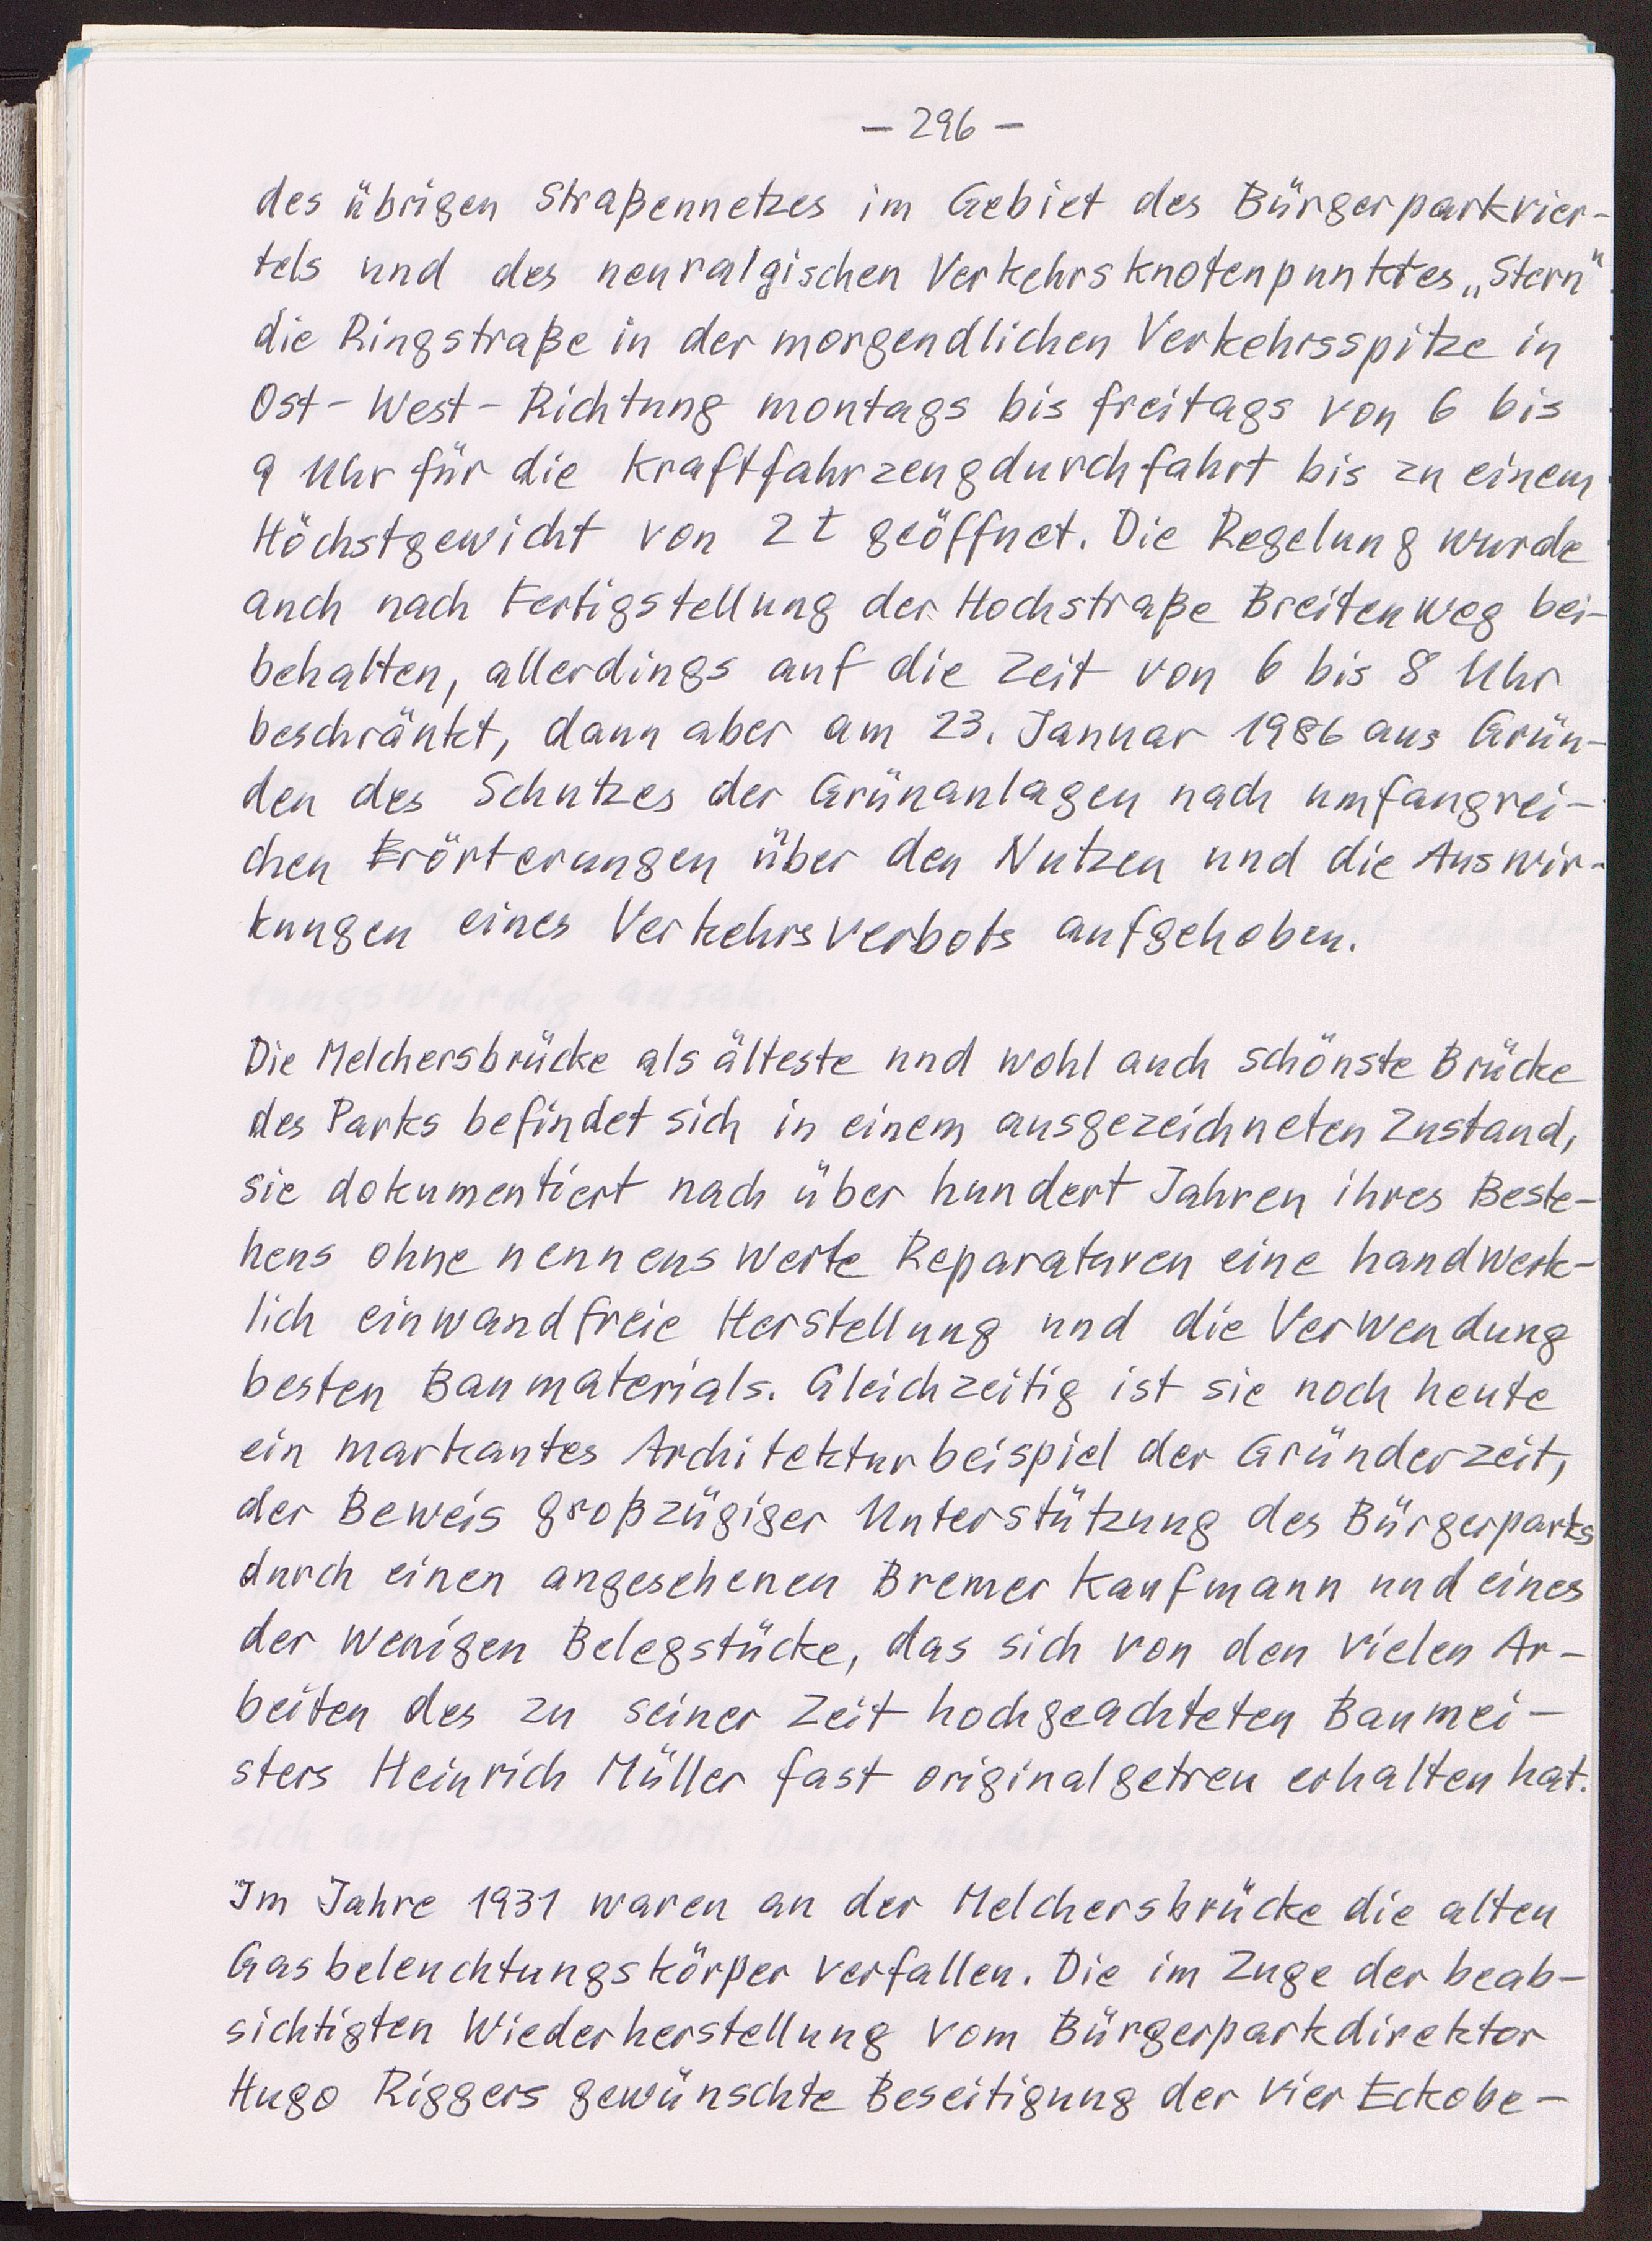 – 296 –
des übrigen Straßennetzes im Gebiet des Bürgerparkvier-
tels und des neuralgischen Verkehrsknotenpunktes „Stern"
die Ringstraße in der morgendlichen Verkehrsspitze in
Ost-West-Richtung montags bis freitags von 6 bis
9 Uhr für die Kraftfahrzeugdurchfahrt bis zu einem
Höchstgewicht von 2 t geöffnet. Die Regelung wurde
auch nach Fertigstellung der Hochstraße Breitenweg bei-
behalten, allerdings auf die Zeit von 6 bis 8 Uhr
beschränkt, dann aber am 23. Januar 1986 aus Grün-
den des Schutzes der Grünanlagen nach umfangrei-
chen Erörterungen über den Nutzen und die Auswir-
kungen eines Verkehrsverbots aufgehoben.
Die Melchersbrücke als älteste und wohl auch schönste Brücke
des Parks befindet sich in einem ausgezeichneten Zustand,
sie dokumentiert nach über hundert Jahren ihres Beste-
hens ohne nennenswerte Reparaturen eine handwerk-
lich einwandfreie Herstellung und die Verwendung
besten Baumaterials. Gleichzeitig ist sie noch heute
ein markantes Architekturbeispiel der Gründerzeit,
der Beweis großzügiger Unterstützung des Bürgerparks
durch einen angesehenen Bremer Kaufmann und eines
der wenigen Belegstücke, das sich von den vielen Ar-
beiten des zu seiner Zeit hochgeachteten Baumei-
sters Heinrich Müller fast originalgetreu erhalten hat.
Im Jahre 1931 waren an der Melchersbrücke die alten
Gasbeleuchtungskörper verfallen. Die im Zuge der beab-
sichtigten Wiederherstellung vom Bürgerparkdirektor
Hugo Riggers gewünschte Beseitigung der vier Eckobe-